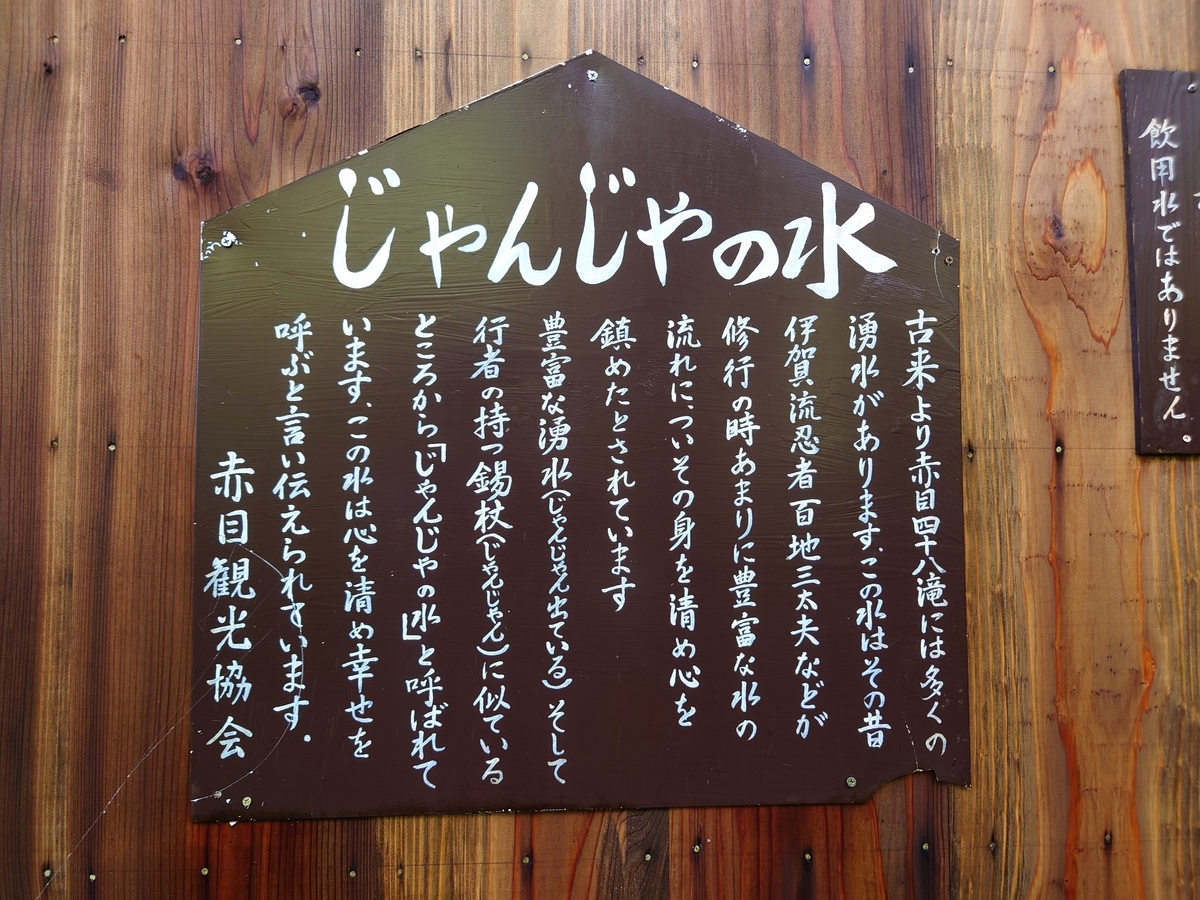 じゃんじゃの水
古来より赤目四十八滝には多くの
湧水があります、この水はその昔
伊賀流忍者百地三太夫などが
修行の時あまりに豊富な水の
流れに、ついその身を清め心を
鎮めたとされています
豊富な湧水(じゃんじゃん出ている)そして
行者の持つ錫杖(じゃんじゃん)に似ている
ところから「じゃんじゃの水」と呼ばれて
います、この水は心を清め幸せを
呼ぶと言い伝えられています.
赤目観光協会
飲用水ではありません